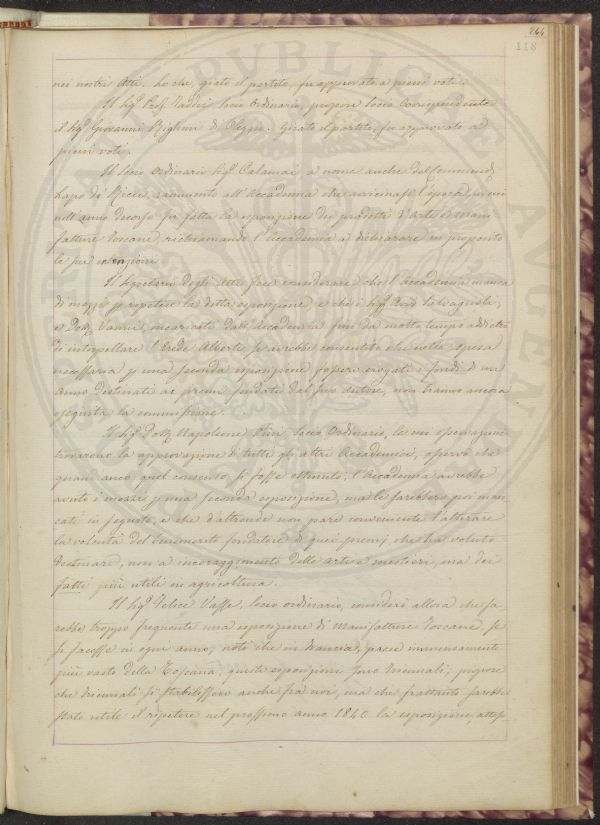 264
118
nei nostri Atti. Lo che, girato il partito, fu approvato a pieni voti.
Il Sig.r Prof. Taddei Socio Ordinario, propose Socio Corrispondente
il Sig.r Giovanni Righini di Oleggio. Girato il partito, fu approvato a
pieni voti.
Il Socio Ordinario Sig.r Calamai a nome anche del
Lapo de' Ricci, rammentò all'Accademia che avvicinasi l'epoca, in cui
nell'anno decorso fu fatta la esposizione dei prodotti d'Arti e mani-
fatture Toscane, richiamando l'Accademia a dichiarare in proposito
le sue intenzioni.
Il Segretario degli Atti fece considerare che l'Accademia manca
di mezzi p ripetere la detta esposizione, e che i Sigg.
e Dott. Vanni, incaricati dall'Accademia fin da molto tempo addietro
di interpellare l'Erede Alberti se avrebbe consentito che nella spesa
necessaria p una seconda esposizione fossero erogati i fondi di un
anno destinati ai premi fondati dal suo autore, non hanno ancora
eseguita la commissione.
Il Sig.r Dott. Napoleone Pini Socio Ordinario, le cui osservazioni
trovarono la approvazione di tutti gli altri Accademici, osservò che
quand'anco quel consenso si fosse ottenuto, l'Accademia avrebbe
avuto i mezzi p una seconda esposizione, ma le sarebbero poi man-
cati in seguito, e che d'altronde non pare conveniente l'alterare
la volontà del benemerito fondatore di quei premj che ha voluto
destinare, non a incoraggimento delle arti e mestieri, ma dei
fatti più utili in agricoltura.
Il Sig.r Felice Vasse, Socio ordinario, considerò allora che sa-
rebbe troppo frequente una esposizione di Manifatture Toscane, se
si facesse in ogni anno; notò che in Francia, paese immensamente
più vasto della Toscana, queste esposizioni sono triennali; propose
che triennali si stabilissero anche fra noi, ma che frattanto sarebbe
stato utile il ripetere nel prossimo anno 1840 la esposizione, attes-